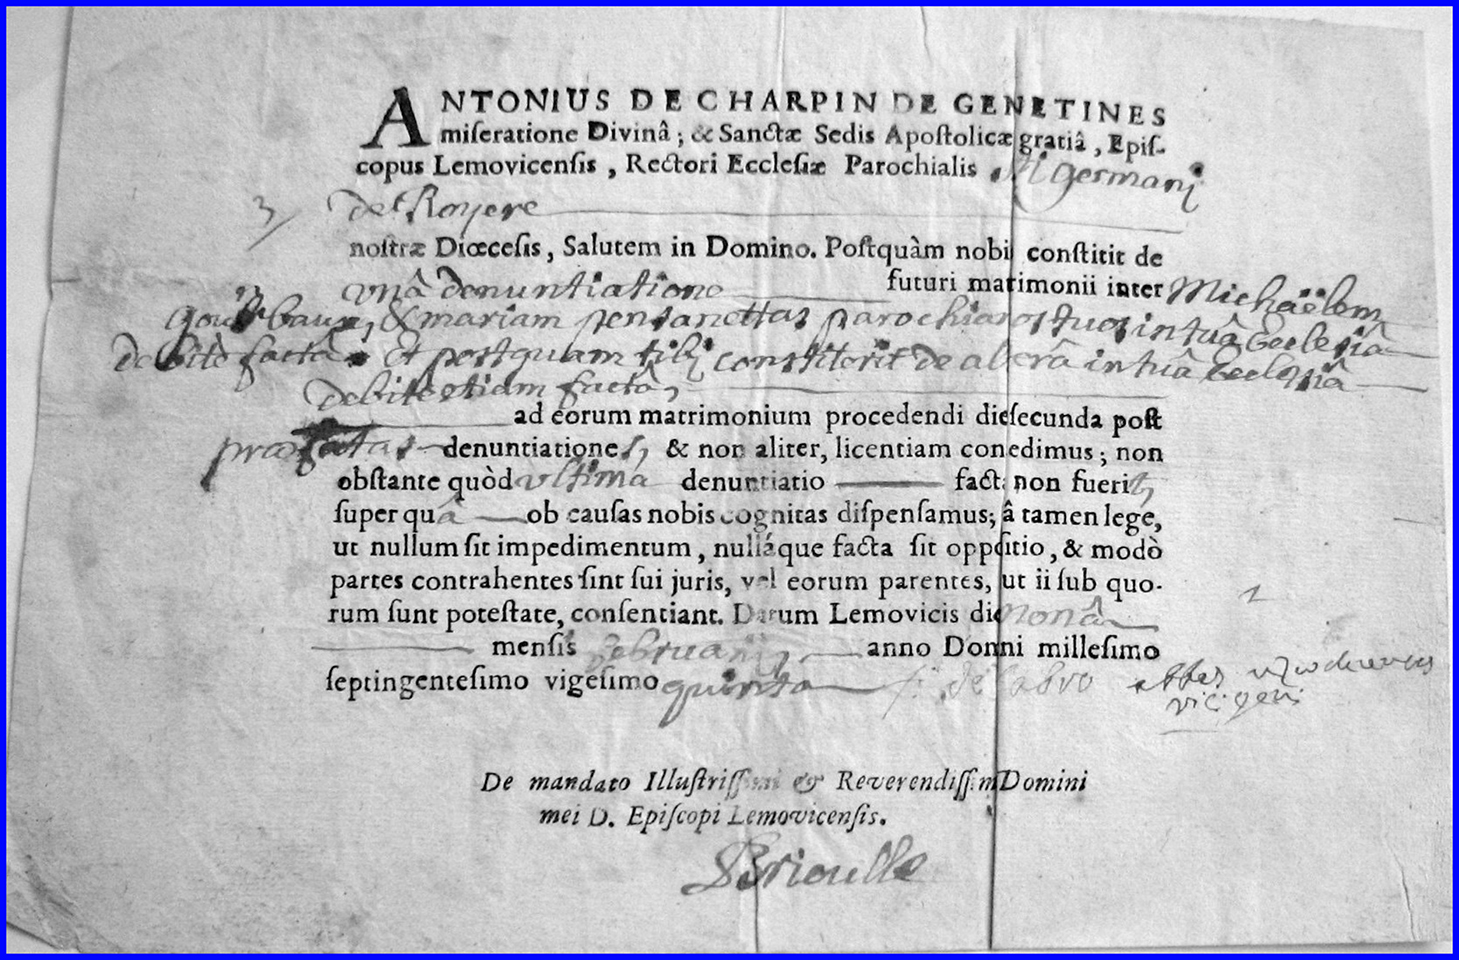 ANTONIUS DE CHARPIN DE GENETINES
miſeratione Divinâ ; & Sanctæ Sedis Apoſtolicæ gratiâ , Epiſ-
copus Lemovicenſis , Rectori Eccleſiæ Parochialis Germani
3 de Royere
noſtræ Diœceſis, Salutem in Domino. Poſtquàm nobis conſtitit de
unâ denuntiatione futuri matrimonii inter Michäelem
& mariam parochianos tuos in tuâ Ecclesiâ
debite factâ Et postquam tibi constiterit de alterâ in tuâ Ecclesiâ
debite etiam factâ,
ad eorum matrimonium procedendi die ſecunda poſt
præfatas denuntiationes, & non aliter, licentiam conedimus ; non
obſtante quòd ultima denuntiatio fact non fuerit,
ſuper quâ ob cauſas nobis cognitas diſpenſamus; â tamen lege,
ut nullum ſit impedimentum, nulláque facta ſit oppoſitio, & modò
partes contrahentes ſint ſui juris, vel eorum parentes, ut ii ſub quo-
rum ſunt poteſtate, conſentiant. Datum Lemovicis die nonâ
menſis februarij, anno Domni milleſimo
ſeptingenteſimo vigeſimo quinto
vic. gen.
De mandato Illuſtriſſimi & Reverendiſſimi Domini
mei D. Epiſcopi Lemovicenſis.